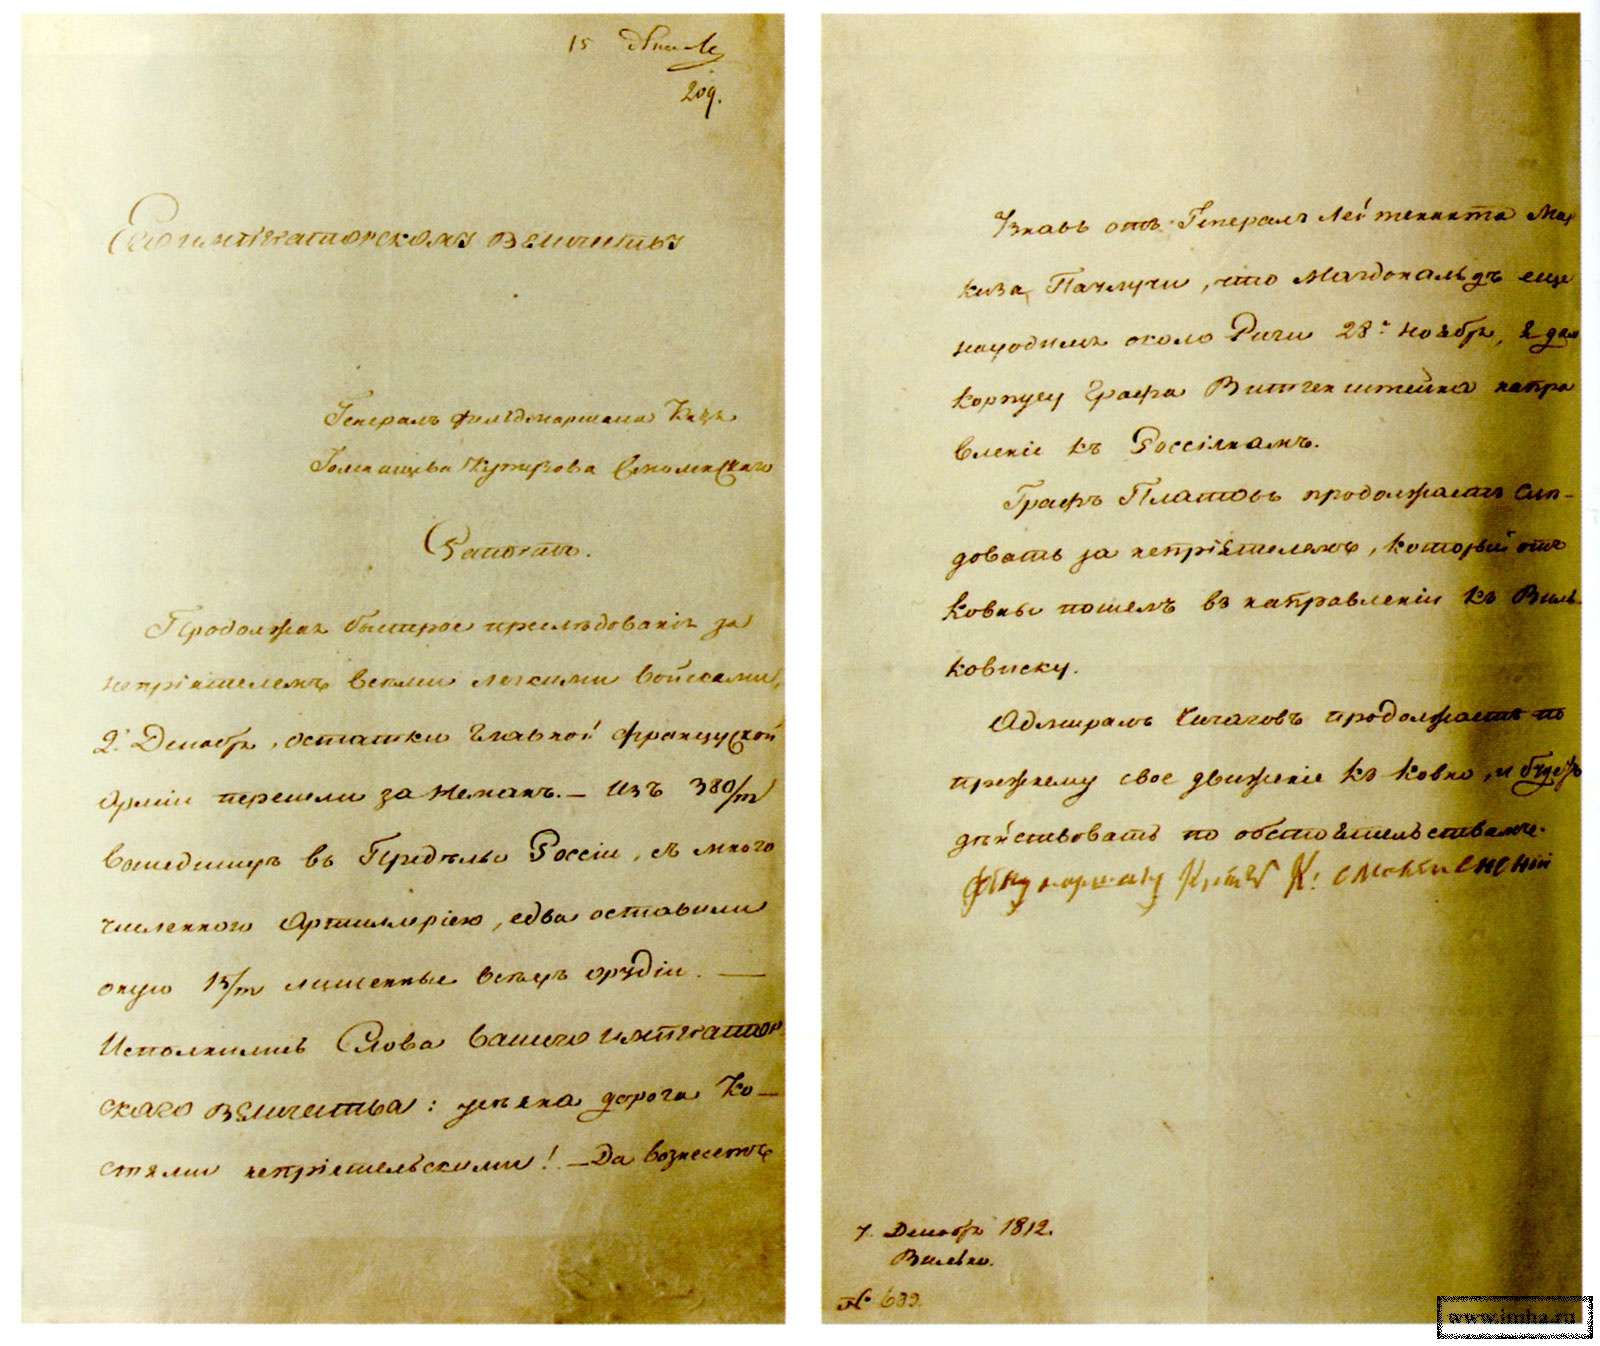 15 Декаб
209.
Его императорскому величеству
Генералъ Фельдмаршала Князя
Голенищева Кутузова Смоленскаго
Рапортъ.
Продолжая быстрое преслѣдованіе за
непріятелемъ всѣми легкими войсками,
2. Декабря, остатки Главной французской
Арміи перешли за Неманъ. — Изъ 380/m
вошедшихъ въ Предѣлы Россіи, съ много
численною Артиллеріею, едва оставили
оную 15/m лишенные всѣхъ орудіи. —
Исполнились Слова вашего император
скаго величества: усѣяна дорога Ко—
стями непріятельскими! — Да вознесетъ
Узнавъ отъ Генералъ Лейтенанта Мар
киза Паулучи, что Магдональдъ еще
находился около Риги 28го Ноября, я далъ
корпусу Графа Витгенштейна напра
вленіе къ Россіянамъ.
Графъ Платовъ продолжаетъ слѣ-
довать за непріятелемъ, который отъ
Ковны пошелъ въ направленіи къ Виль-
ковиску.
Адмиралъ Чичаговъ продолжаетъ по
прежнему свое движеніе къ Ковно, и будетъ
дѣйствовать по обстоятельствамъ.
К: Смоленской
7. Декабря 1812.
Вильно.
№
www.imha.ru